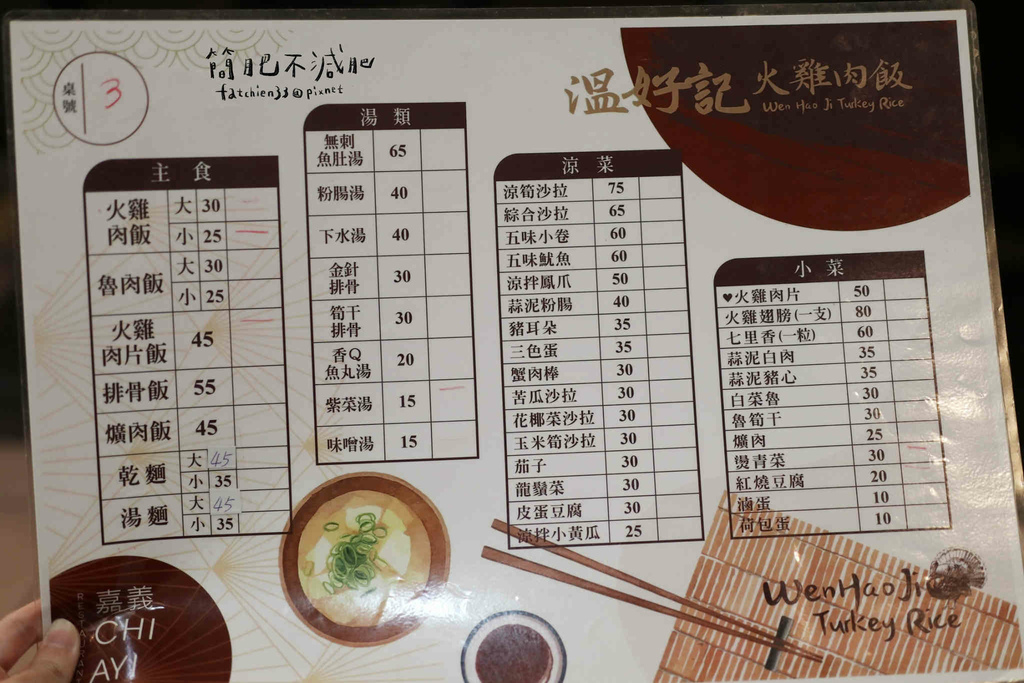 桌號
3
簡肥不減肥
fatchien33@pixnet
溫好記火雞肉飯
Wen Hao Ji Turkey Rice
主食
火雞肉飯 大 30 一
小 25 一
魯肉飯 大 30
小 25
火雞肉片飯 45 一
排骨飯 55
爌肉飯 45
乾麵 大 45
小 35
湯麵 大 45
小 35
湯類
無刺魚肚湯 65
粉腸湯 40
下水湯 40
金針排骨 30
筍干排骨 30
香Q魚丸湯 20
紫菜湯 15 一
味噌湯 15
涼菜
涼筍沙拉 75
綜合沙拉 65
五味小卷 60
五味魷魚 60
涼拌鳳爪 50
蒜泥粉腸 40
豬耳朵 35
三色蛋 35
蟹肉棒 30
苦瓜沙拉 30
花椰菜沙拉 30
玉米筍沙拉 30
茄子 30
龍鬚菜 30
皮蛋豆腐 30
涼拌小黃瓜 25
小菜
♥火雞肉片 50
火雞翅膀(一支) 80
七里香(一粒) 60
蒜泥白肉 35
蒜泥豬心 35
白菜魯 30
魯筍干 30
爌肉 25
燙青菜 30 一
紅燒豆腐 20
滷蛋 10
荷包蛋 10
嘉義
CHI
AYI
WenHaoJi
Turkey Rice